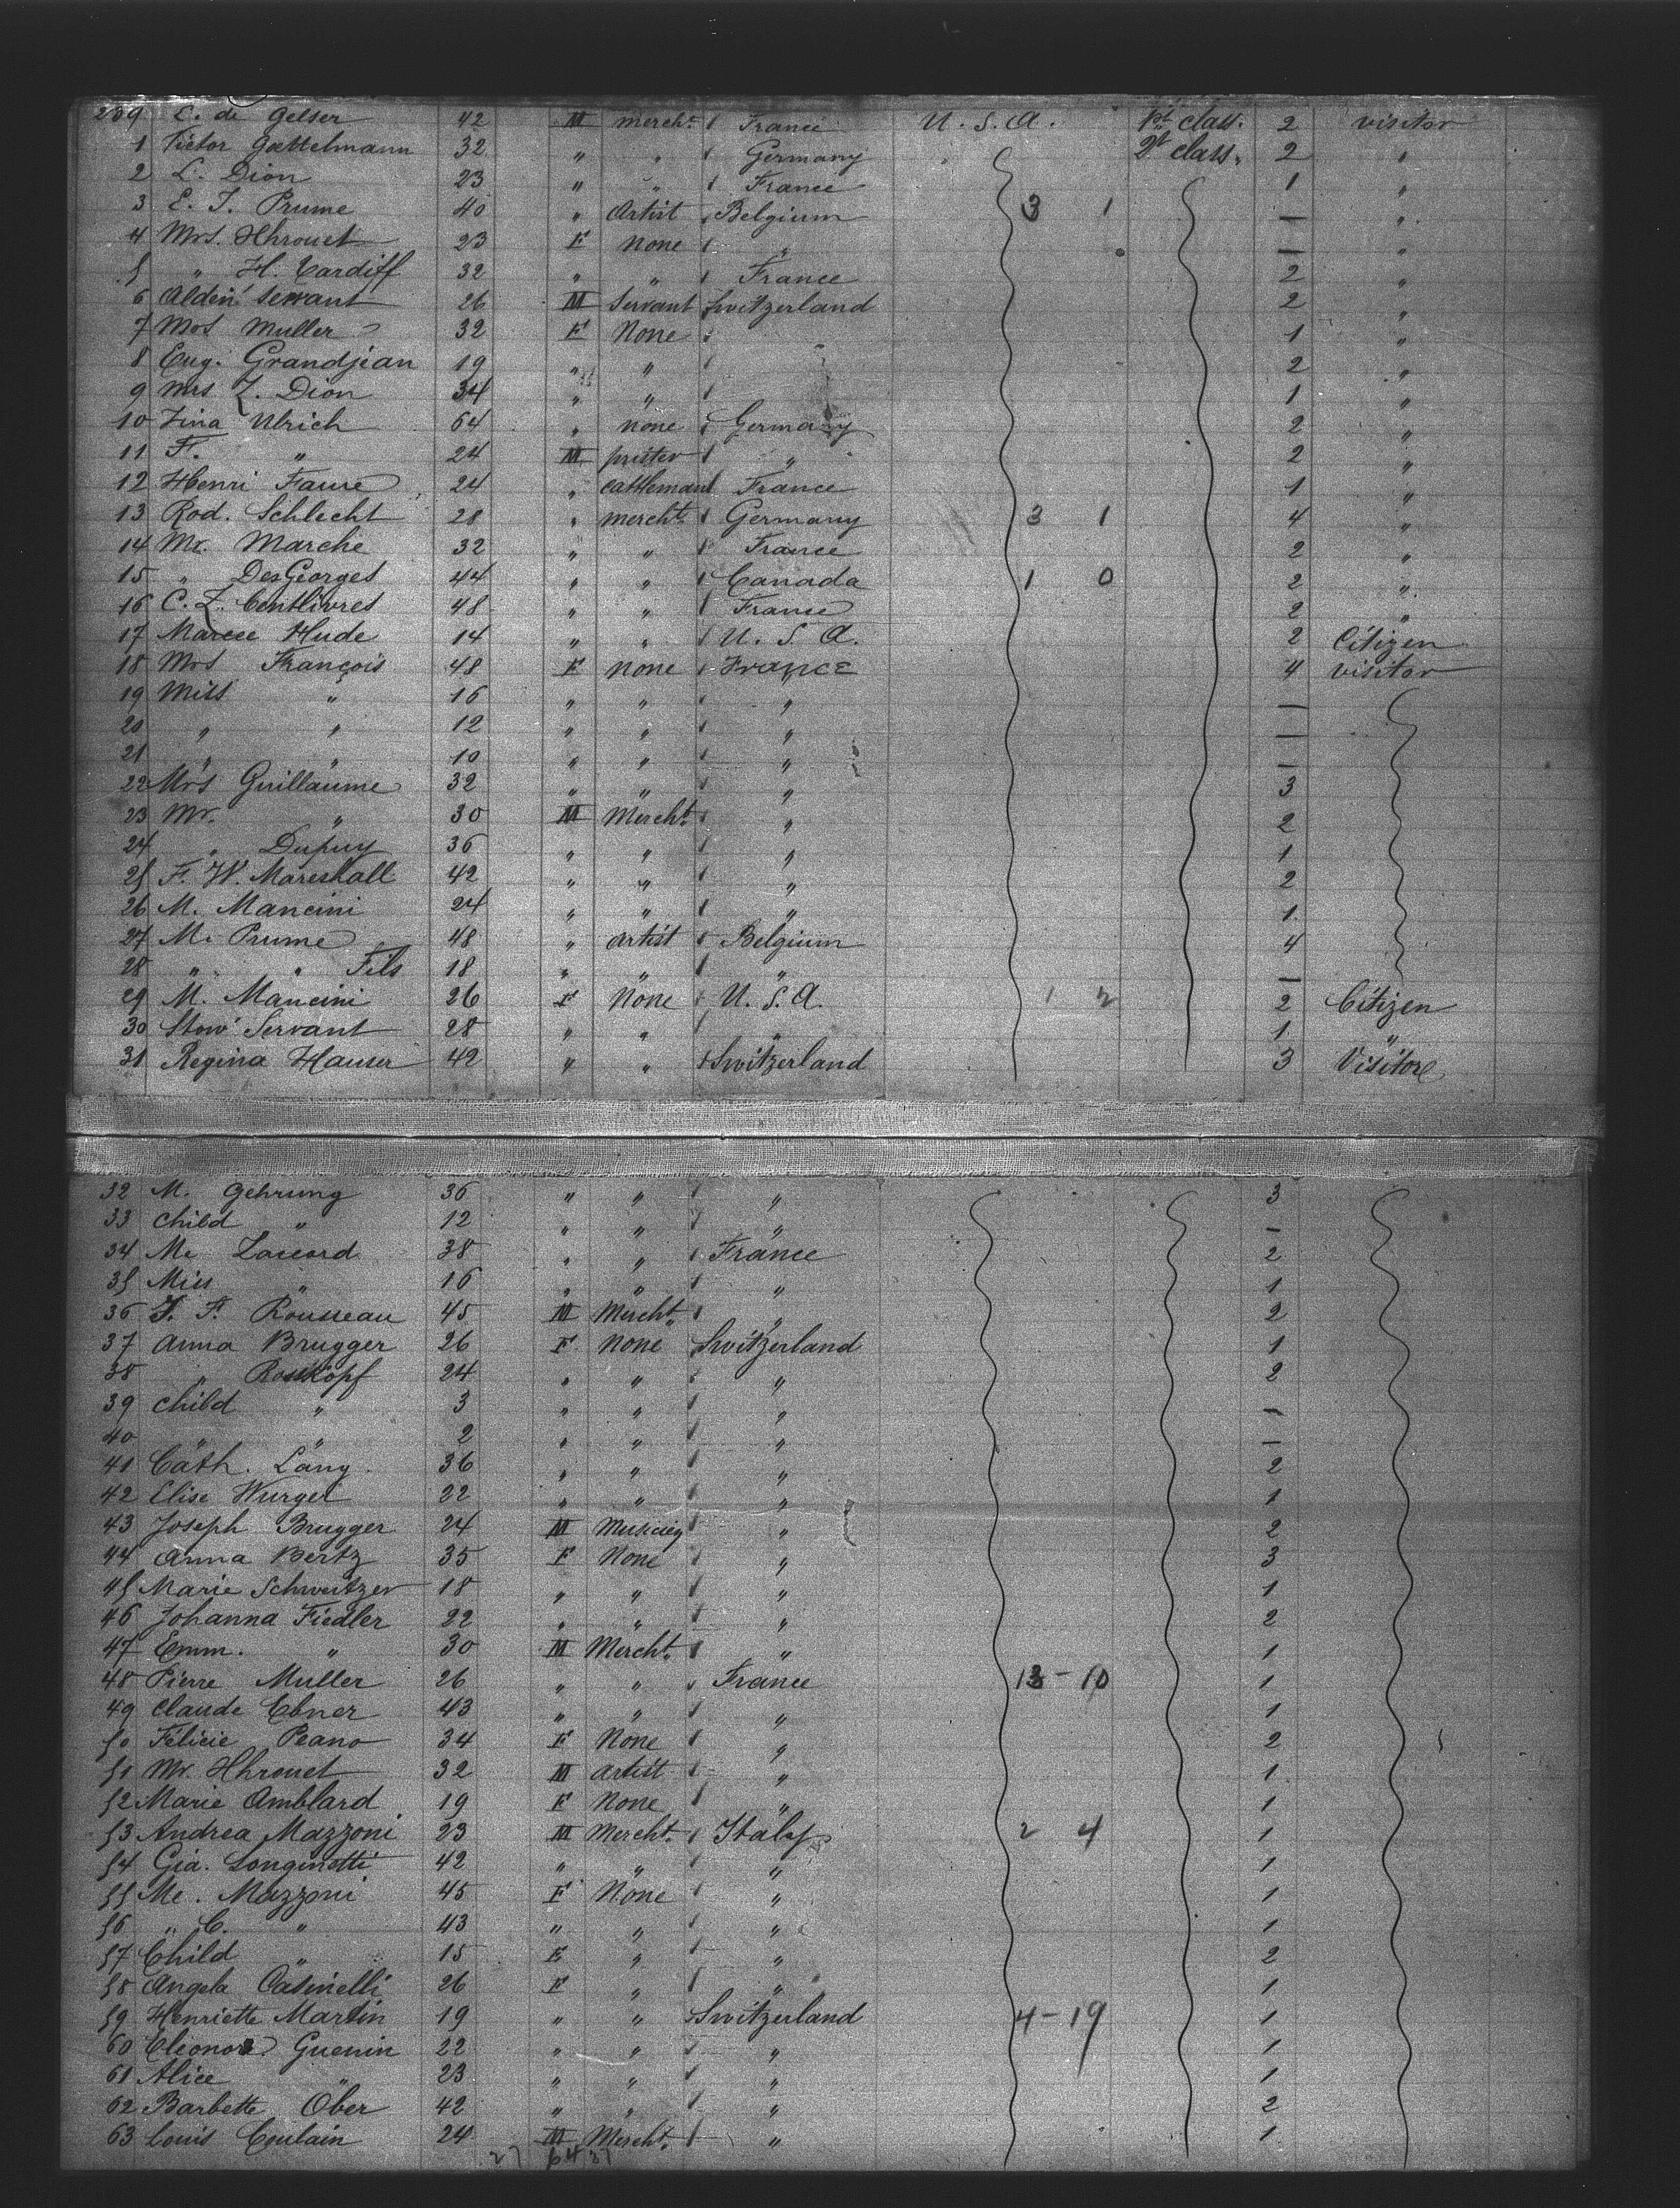 239 C. de Gelser 42 M mercht. / France U. S. A. 1st class. 2 visitor
1 Victor Gattelmann 32 " " / Germany " 2d class. 2 "
2 L. Dion 23 " " / France 1 "
3 E. J. Prume 40 " Artist / Belgium 3 1 — "
4 Mrs. Hhrouet 23 F none / " — "
5 " H. Cardiff 32 " " / France 2 "
6 Alden' Servant 26 M Servant / Switzerland 2 "
7 Mrs Muller 32 F None 1 "
8 Eug. Grandjean 19 " " / 2 "
9 Mrs Z. Dion 34 " " / 1 "
10 Zina Ulrich 64 " none / Germany 2 "
11 F. " 24 M / " 2 "
12 Henri Faure 24 " cattleman / France 1 "
13 Rod. Schlecht 28 " mercht. / Germany 3 1 4 "
14 Mr. Marche 32 " " / France 2 "
15 " DesGeorges 44 " " / Canada 1 0 2 "
16 C. Z. Centlivres 48 " " / France 2 "
17 Marcee Hude 14 " " / U. S. A. 2 Citizen
18 Mrs François 48 F none / France 4 visitor
19 Miss " 16 " " / " —
20 " " 12 " " / " —
21 " " 10 " " / " —
22 Mrs Guillaume 32 " " / " 3
23 Mr. " 30 M Mercht. / " 2
24 " Dupuy 36 " " / " 1
25 F. W. Mareshall 42 " " / " 2
26 M. Mancini 24 " " / " 1
27 M. Prume 48 " artist / Belgium 4
28 " " Fils 18 " " / " —
29 M. Mancini 26 F None / U. S. A. 1 2 2 Citizen
30 Stow' Servant 28 " " / " 1 "
31 Regina Hauser 42 " " / Switzerland 3 Visitor
32 M. Gehrung 36 " " / " 3
33 Child " 12 " " / " —
34 Me Zaccord 38 " " / France 2
35 Miss " 16 " " / " 1
36 J. F. Rousseau 45 M Mercht. / " 2
37 Anna Brugger 26 F None / Switzerland 1
38 " Rosskopf 24 " " / " 2
39 Child " 3 " " / " —
40 " " 2 " " / " —
41 Cath. Lang 36 " " / " 2
42 Elise Wurgel 22 " " / " 1
43 Joseph Brugger 24 M / " 2
44 Anna Bertz 35 F None / " 3
45 Marie Schweitzer 18 " " / " 1
46 Johanna Fiedler 22 " " / " 2
47 Emm. " 30 M Mercht. / " 1
48 Pierre Muller 26 " " / France 13 - 10 1
49 Claude Ebner 43 " " / " 1
50 Félicie Peano 34 F None / " 2
51 Mr. Hhrouet 32 M artist / " 1
52 Marie Amblard 19 F None / " 1
53 Andrea Mazzoni 23 M Mercht. / Italy 2 4 1
54 Gia. Longinotti 42 " " / " 1
55 Me. Mazzoni 45 F None / " 1
56 " C. " 43 " " / " 1
57 Child " 15 F " / " 2
58 Angela Casinelli 26 F " / " 1
59 Henriette Martin 19 " " / Switzerland 4 - 19 1
60 Eleonore Guenin 22 " " / " 1
61 Alice " 23 " " / " 1
62 Barbette Ober 42 " " / " 2
63 Louis Coulain 24 M Mercht. / " 1